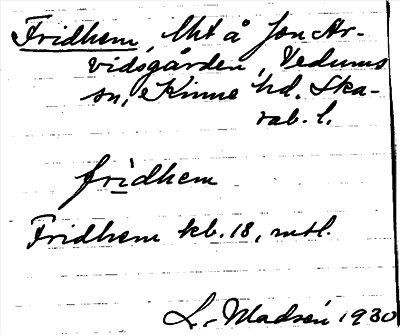 Fridhem, lht å Jon Ar-
vidsgården, Vedums
sn, Kinne hd. Ska-
rab. l.
fridhem
Fridhem kb. 18, mtl.
L. Madsén 1930